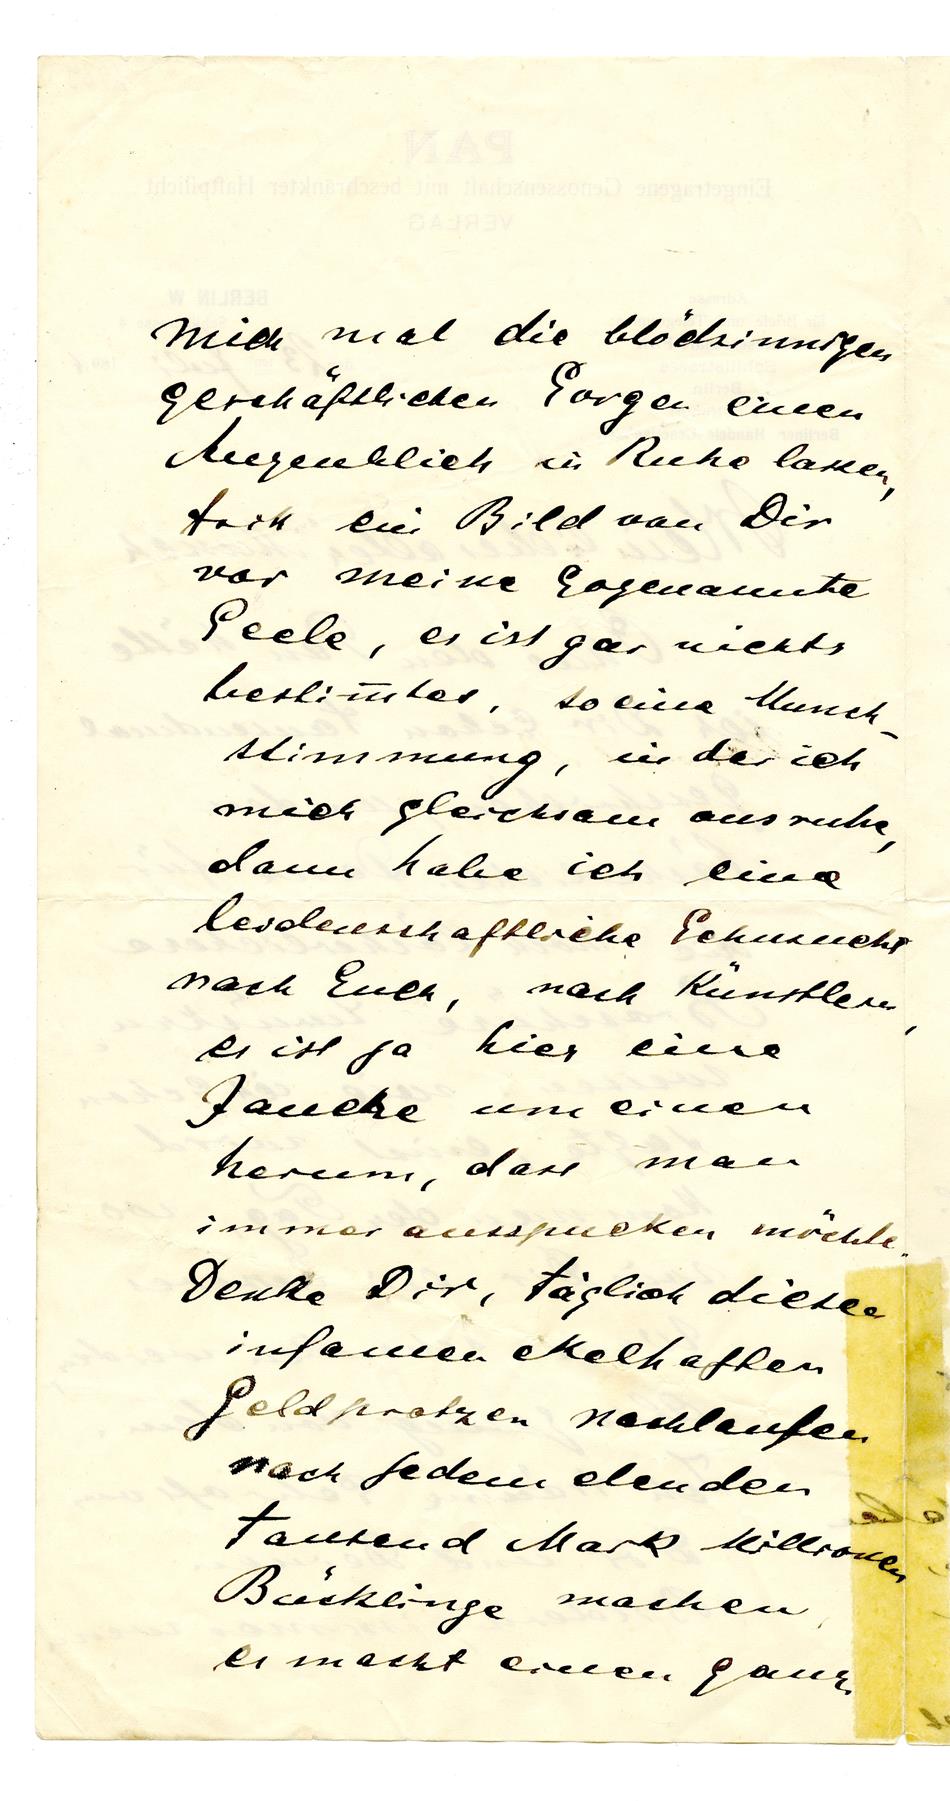 mich mal die blödsinnigen
geschäftlichen Sorgen einen
Augenblick in Ruhe lassen,
tritt ein Bild von Dir
vor meine sogenannte
Seele, es ist gar nichts
bestim̅tes, so eine Wunsch-
stimmung, in der ich
mich gleichsam ausruhe,
dann habe ich eine
leidenschaftliche Sehnsucht
nach Euch, nach Künstlern,
es ist ja hier eine
Jauche um einen
herum, dass man
immer ausspucken möchte.
Denke Dir, täglich diesen
infamen ekelhaften
Geldprotzen nachlaufen
nach jedem elenden
tausend Mark Millionen
Bücklinge machen,
es macht einen ganz
PAN
Eingetragene Genossenschaft mit beschränkter Haftpflicht
VERLAG
BERLIN W